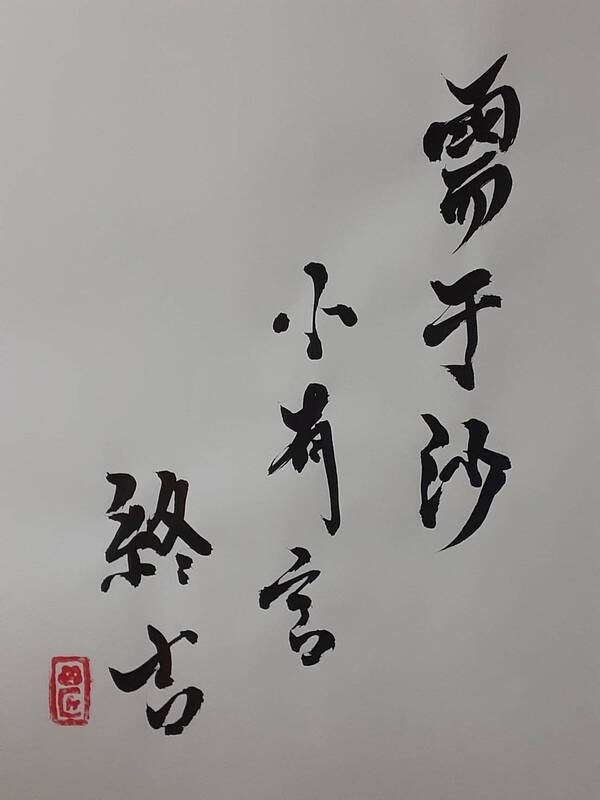 需于沙
小有言
終吉